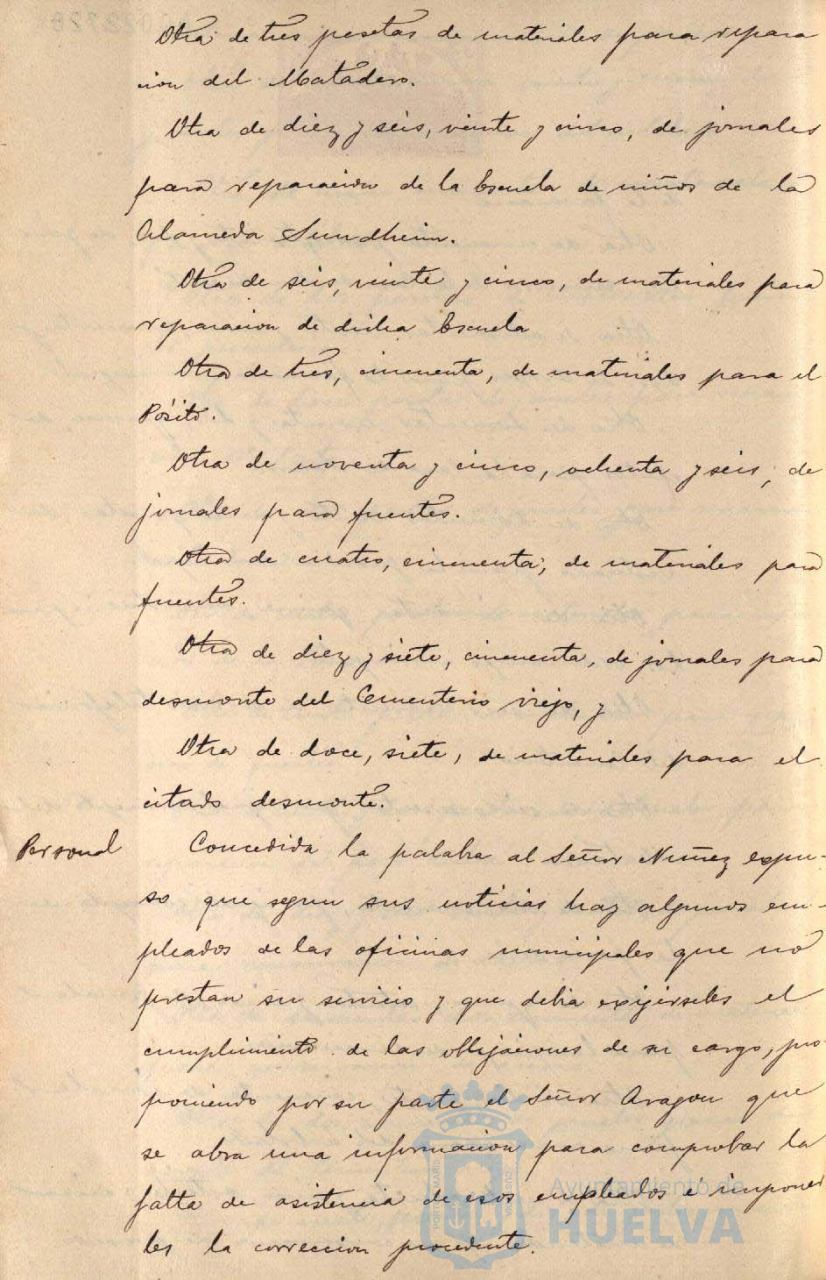 Otra de tres pesetas de materiales para repara
cion del Matadero.
Otra de diez y seis, veinte y cinco, de jornales
para reparacion de la Escuela de niños de la
Alameda Sundheim.
Otra de seis, veinte y cinco, de materiales para
reparacion de dicha Escuela
Otra de tres, cincuenta, de materiales para el
Pósito.
Otra de noventa y cinco, ochenta y seis, de
jornales para fuentes.
Otra de cuatro, cincuenta, de materiales para
fuentes.
Otra de diez y siete, cincuenta, de jornales para
desmonte del Cementerio viejo, y
Otra de doce, siete, de materiales para el
citado desmonte.
Personal
Concedida la palabra al Señor Nuñez expu-
so que segun sus noticias hay algunos em-
pleados de las oficinas municipales que no
prestan su servicio y que debia exijirseles el
cumplimiento de las obligaciones de su cargo, pro
poniendo por su parte el Señor Aragon que
se abra una informacion para comprobar la
falta de asistencia de esos empleados é imponer
les la correccion procedente.
Ayuntamiento de
HUELVA